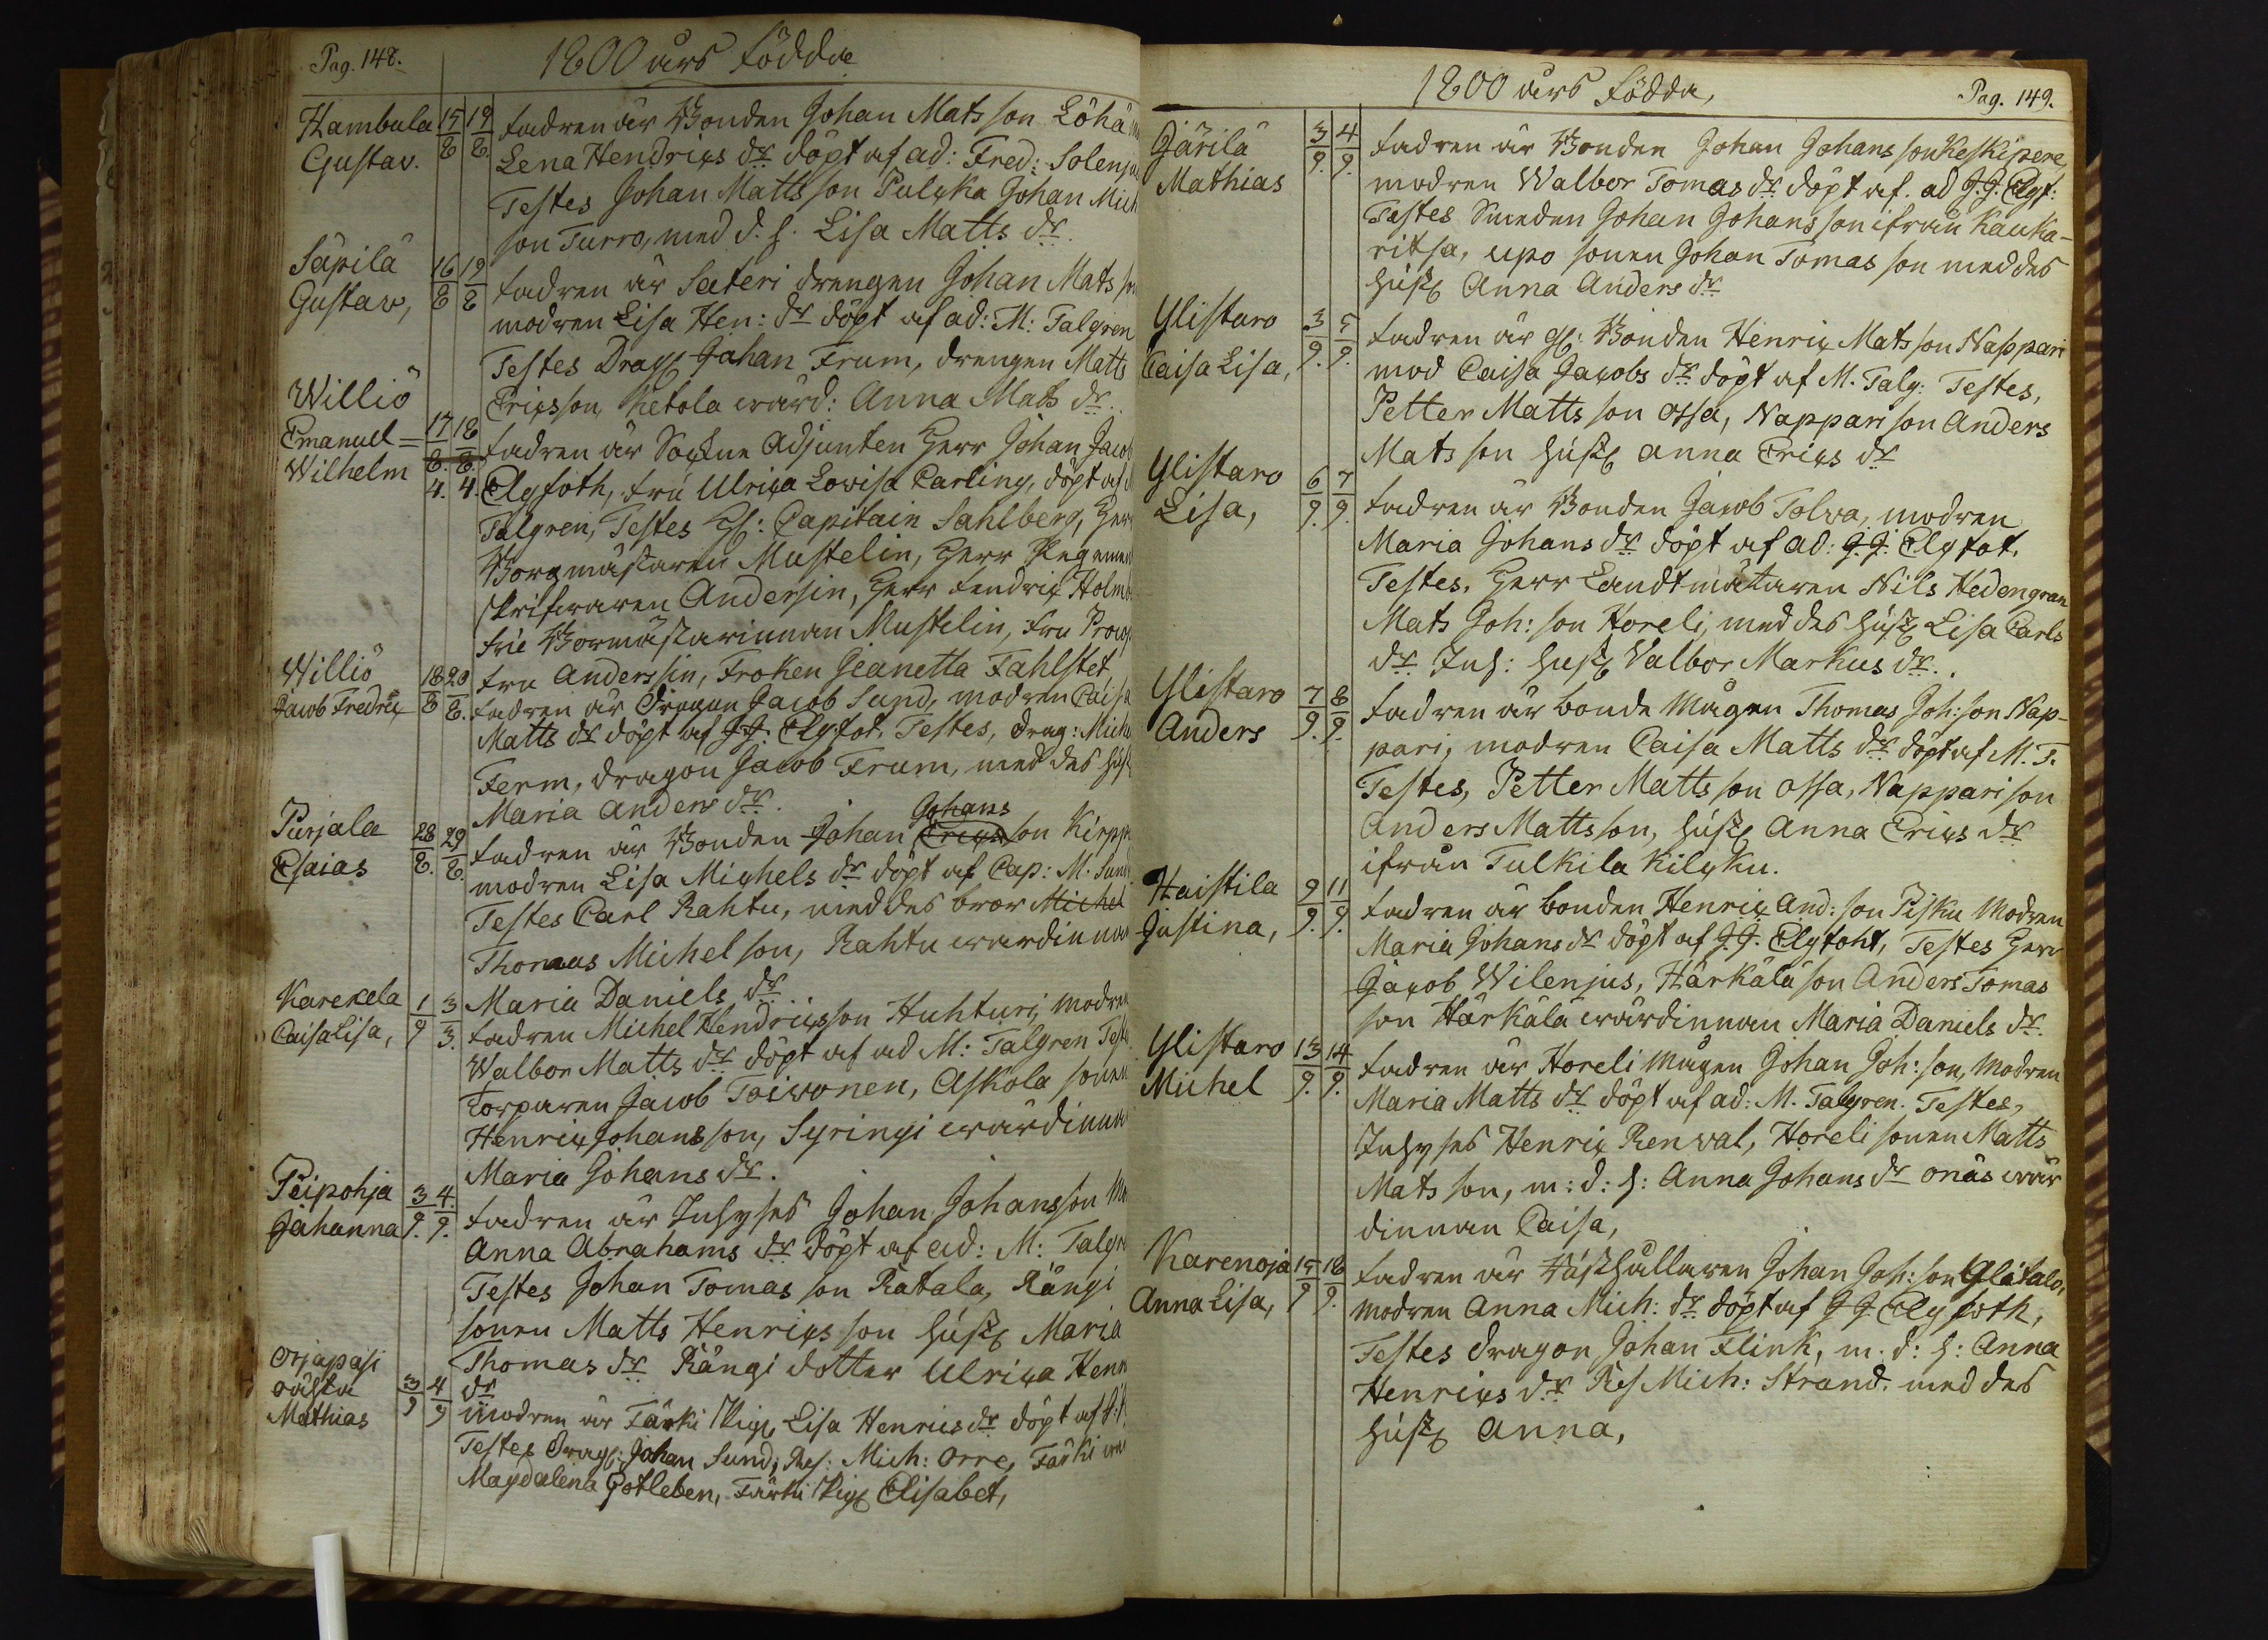 Pag. 148.
1800 års Födda
Hambula 15/8 19/8. Fadren är Bonden Johan Mats son Löhä
Gustav. Lena Hendrics dr döpt af ad: Fred: Solenju
Testes Johan Matts son Pulcka Johan Mich
son Turro, med d. h. Lisa Matts dr.
Säpilä 16/8 19/8 Fadren är Säteri drengen Johan Mats son
Gustav, modren Lisa Hen: dr döpt af ad: M: Talgren
Testes Drag Johan Frum, drengen Matts
Ericsson, Ketola wärd: Anna Mats dr.
Williö
Emanuel= 17/8. 18/8. Fadren är Sockne Adjuncten Herr Johan Jacob
Wilhelm 4. 4. Elgfoth, Fru Ulrica Lovisa Carling, döpt af
Talgren, Testes H: Capitain Sahlberg, Herr
Borgmästaren Mustelin, Herr Regemen
skrifwaren Andersin, Herr Fendric Holmb
Frü Bormästarinnan Mustelin, Fru Prow
Fru Anderssin, Froken Jeanetta Fahlstet
Williö 18/8 20/8. Fadren är Dragun Jacob Sund, modren Caisa
Jacob Fredric Matts dr döpt af J.J. Elgfot. Testes, drag: Mich
Ferm, dragon Jacob Frum, med des hust
Maria Anders dr.
Johans
Purjala 28/8. 29/8. Fadren är Bonden Johan Erics son Kirppu
Esaias modren Lisa Michels dr döpt af Cap: M. Sund
Testes Carl Rahtu, med des bror Michel
Thomas Michel son, Rahtu wärdinnan
Maria Daniels dr
Karekela 1/9 3/3. Fadren Michel Hendricsson Huhturi, Modren
Caisa Lisa, Walbor Matts dr döpt af ad M: Talgren Test
Torparen Jacob Toiwonen, Askola sonen
Henric Johansson, Syringi wärdinnan
Maria Johans dr.
Peipohja 3/9. 4/9. Fadren är Inhyses Johan Johansson Mo
Johanna Anna Abrahams dr döpt af ad: M: Talgr
Testes Johan Tomas son Ratala, Rängi
sonen Matts Henrics son hust Maria
Thomas dr Rängi dotter Ulrica Henr
dr
Orjapasi
oächta 3/9 4/9 Modren är Färki Pig Lisa Henrics dr döpt af
Mathias Testes Drag: Johan Sund, Res: Mich: Orre, Färki
Magdalena Gotleben, Färki Pig Elisabet,
1800 års Födda,
Pag. 149.
Järilä 3/9. 4/9. Fadren är Bonden Johan Johans son Keskipere
Mathias modren Walbor Tomas dr döpt af. ad J.J. Elgf:
Testes Smeden Johan Johans son ifrån Kauka-
ritsa, upo sonen Johan Tomas son med des
hust Anna Anders dr
Ylistaro 3/9. 5/9. Fadren är Bonden Henric Mats son Nappari
Caisa Lisa, mod Caisa Jacobs dr döpt af M. Talg: Testes,
Petter Matts son Ossa, Nappari son Anders
Mats son hust Anna Erics dr
Ylistaro 6/9. 7/9. Fadren är Bonden Jacob Tolva, modren
Lisa, Maria Johans dr döpt af ad: J.J. Elgfot.
Testes, Herr Landtmätaren Nils Hedengran
Mats Joh: son Horeli, med des hust Lisa Carls
dr Inh: hust Valbor Markus dr.
Ylistaro 7/9. 8/9. Fadren är bonde Mågen Thomas Joh: son Nap-
Anders pari, modren Caisa Matts dr döpt af M. T.
Testes, Petter Matts son Ossa, Nappari son
Anders Mattsson, hust Anna Erics dr
ifrån Tulkila Kilcku.
Haistila 9/9. 11/9. Fadren är bonden Henric And: son Pisku Modren
Justina, Maria Johans dr döpt af J.J. Elgfoht, Testes Herr
Jacob Wilenjus, Härkälä son Anders Tomas
son Härkälä wärdinnan Maria Daniels dr.
Ylistaro 13/9. 14/9. Fadren är Horeli Mågen Johan Joh: son, Modren
Michel Maria Matts dr döpt af ad: M. Talgren. Testes,
Inhyses Henric Renwal, Horeli sonen Matts
Mats son, m: d: h: Anna Johans dr onäs wär
dinnan Caisa,
Karenoja 15/9 18/9. Fadren är Hushållaren Johan Joh: son Ylitalo,
Anna Lisa, Modren Anna Mich: dr döpt af J J. Elgfoth,
Testes dragon Johan Flink, m. d: h: Anna
Henrics dr Res Mich: Strand. med des
hust Anna,